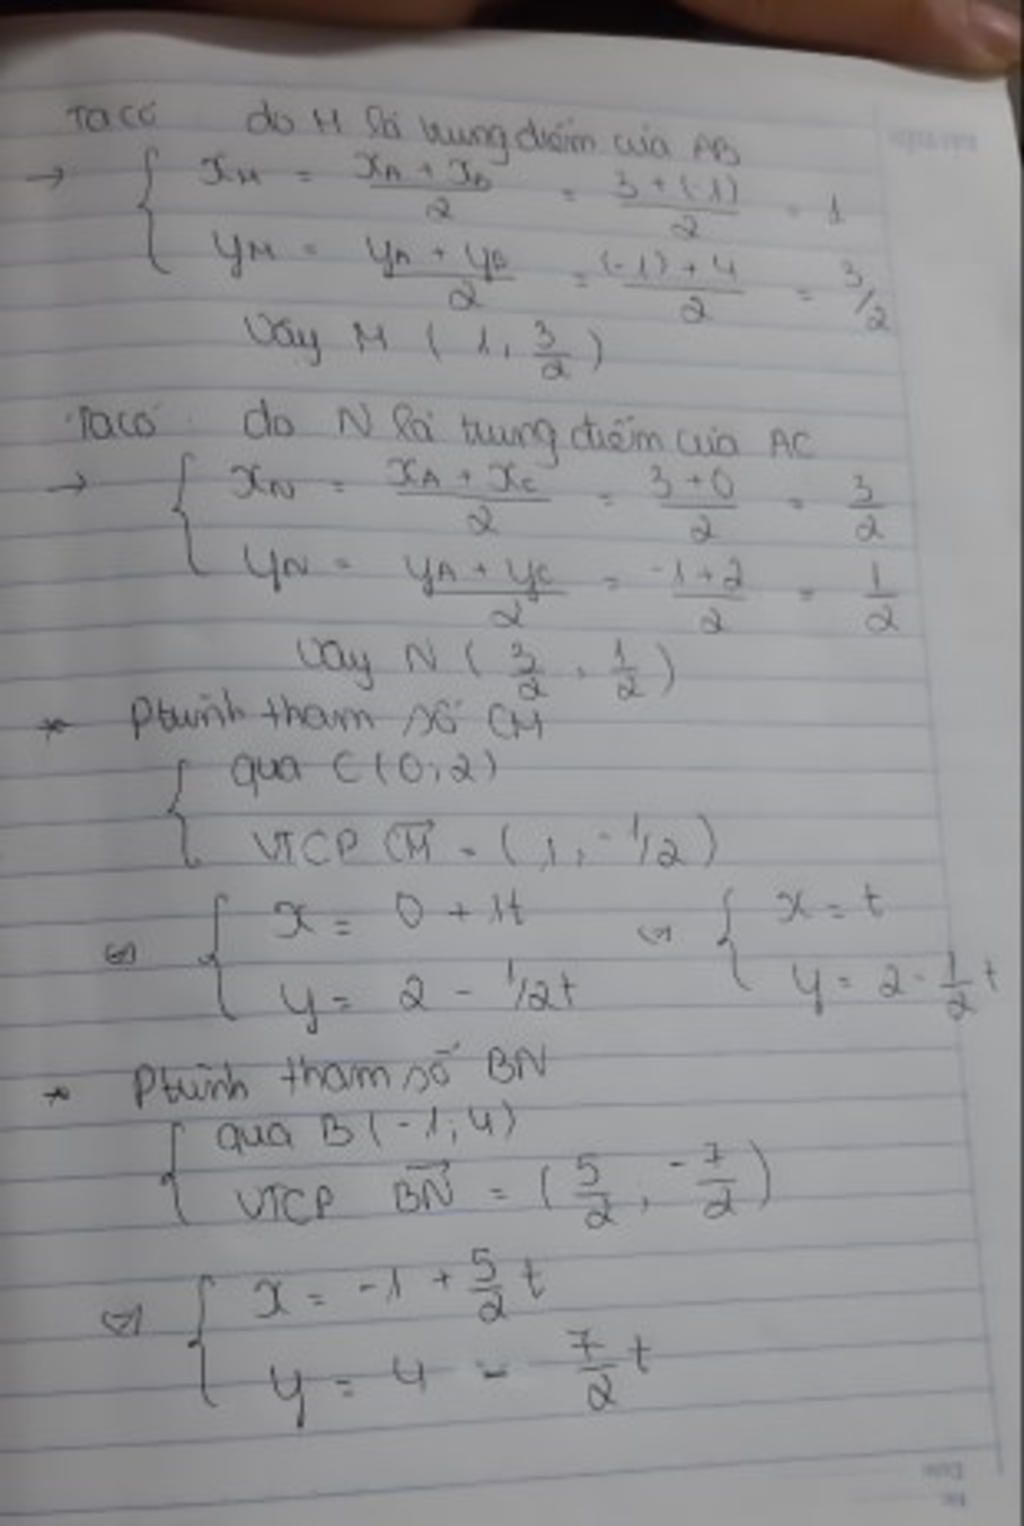 Ta có do M là trung điểm của AB
→ { xM = (xA + xB)/2 = (3 + (-1))/2 = 1
yM = (yA + yB)/2 = ((-1) + 4)/2 = 3/2
Vậy M ( 1 , 3/2 )
Ta có do N là trung điểm của AC
→ { xN = (xA + xC)/2 = (3 + 0)/2 = 3/2
yN = (yA + yC)/2 = (-1 + 2)/2 = 1/2
Vậy N ( 3/2 , 1/2 )
* Ptrình tham số CM
{ qua C (0; 2)
VTCP CM→ = ( 1 , -1/2 )
⇔ { x = 0 + 1t ⇔ { x = t
y = 2 - 1/2t y = 2 - 1/2 t
* Ptrình tham số BN
{ qua B (-1; 4)
VTCP BN→ = ( 5/2 , -7/2 )
⇔ { x = -1 + 5/2 t
y = 4 - 7/2 t